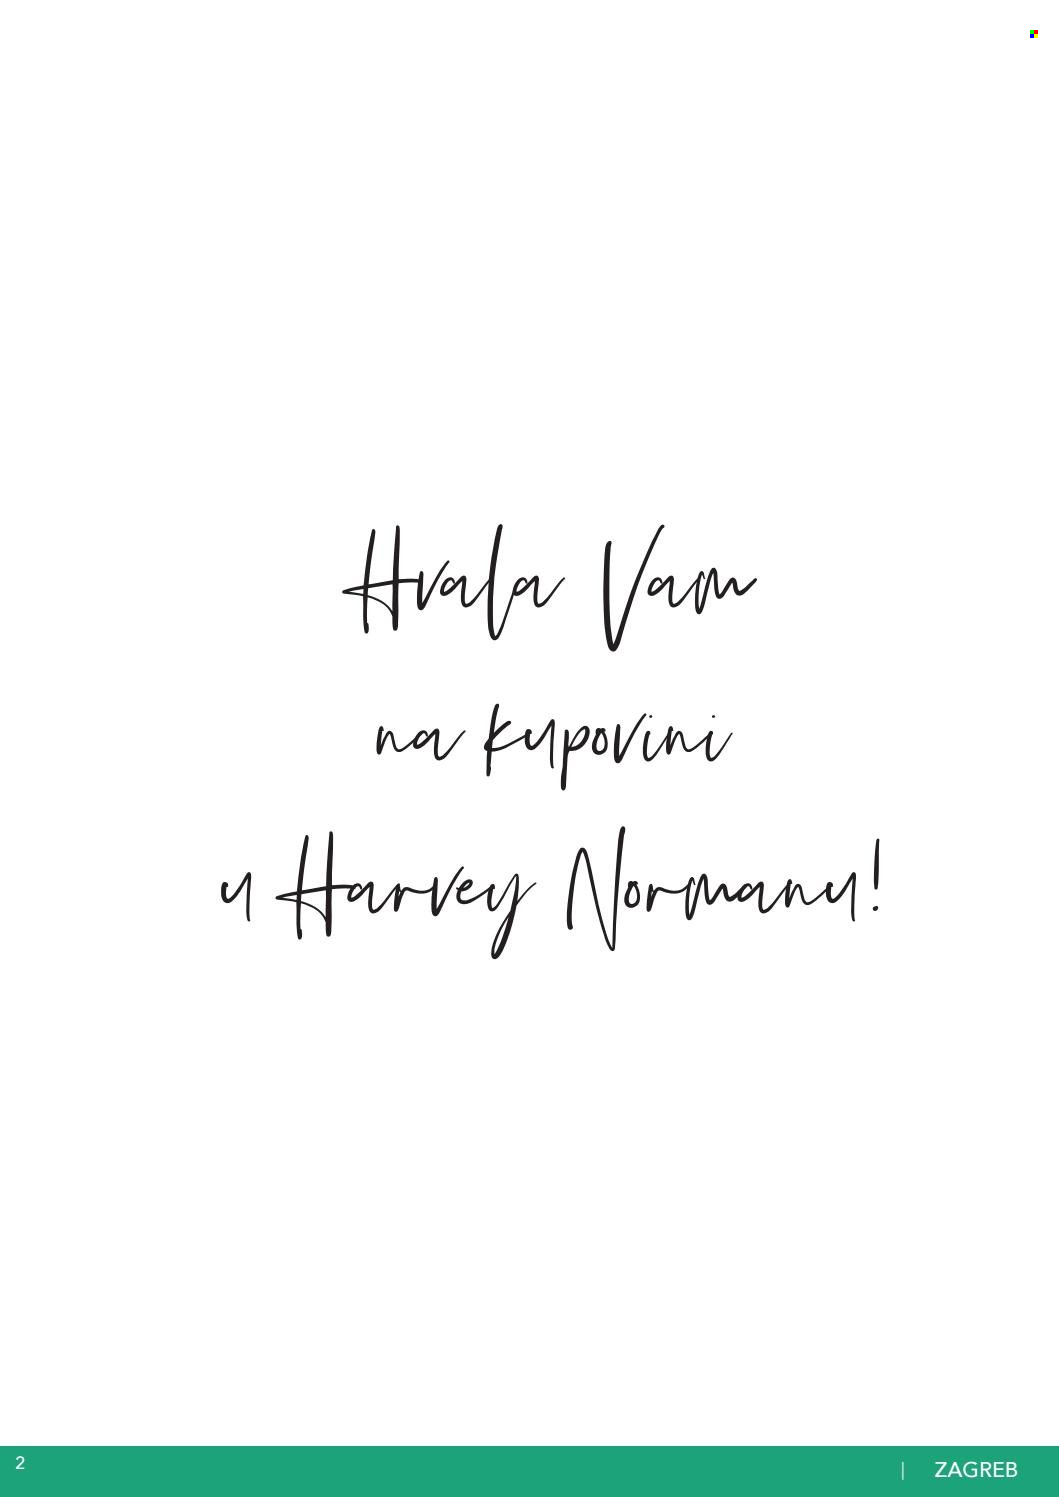 Hvala Vam
na kupovini
u Harvey Normanu!
2
| ZAGREB